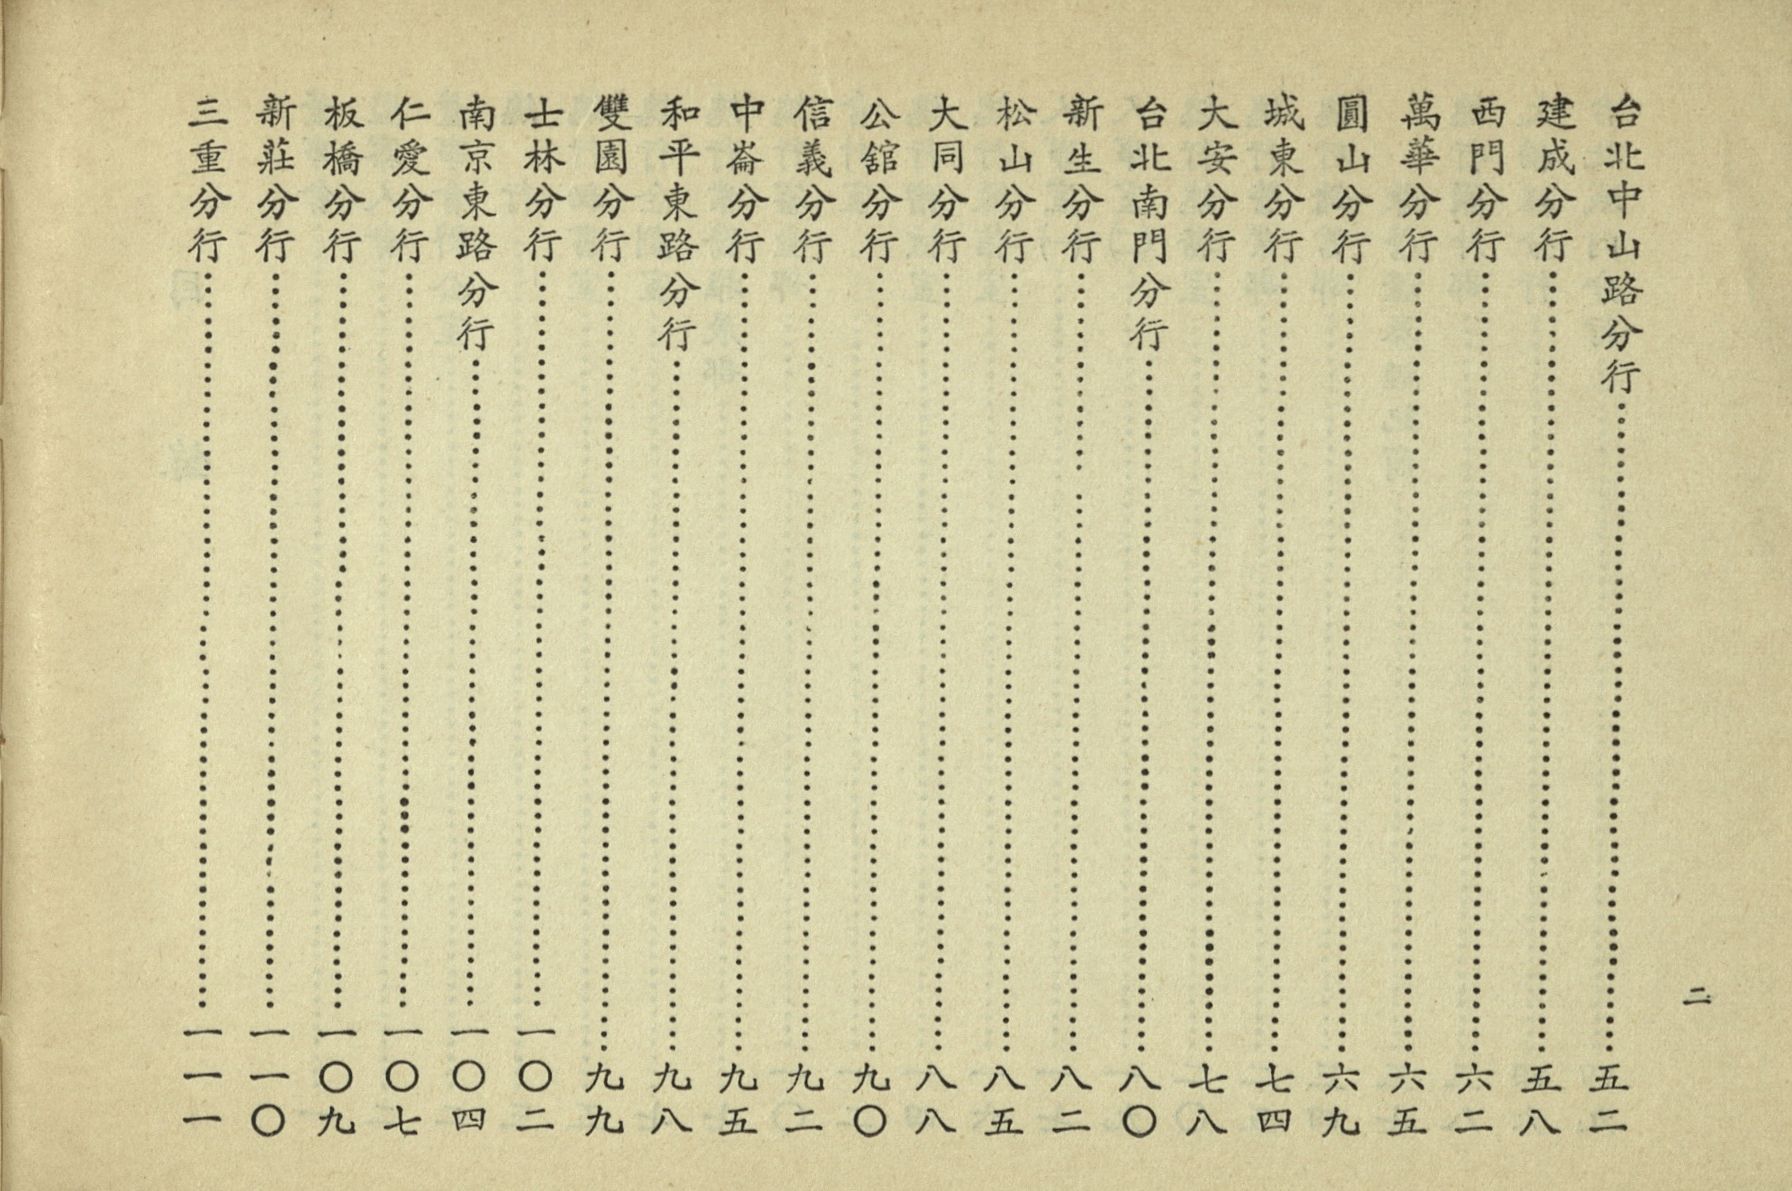 台北中山路分行⋯⋯五二
建成分行⋯⋯五八
西門分行⋯⋯六二
萬華分行⋯⋯六五
圓山分行⋯⋯六九
城東分行⋯⋯七四
大安分行⋯⋯七八
台北南門分行⋯⋯八〇
新生分行⋯⋯八二
松山分行⋯⋯八五
大同分行⋯⋯八八
公舘分行⋯⋯九〇
信義分行⋯⋯九二
中崙分行⋯⋯九五
和平東路分行⋯⋯九八
雙園分行⋯⋯九九
士林分行⋯⋯一〇二
南京東路分行⋯⋯一〇四
仁愛分行⋯⋯一〇七
板橋分行⋯⋯一〇九
新莊分行⋯⋯一一〇
三重分行⋯⋯一一一
二